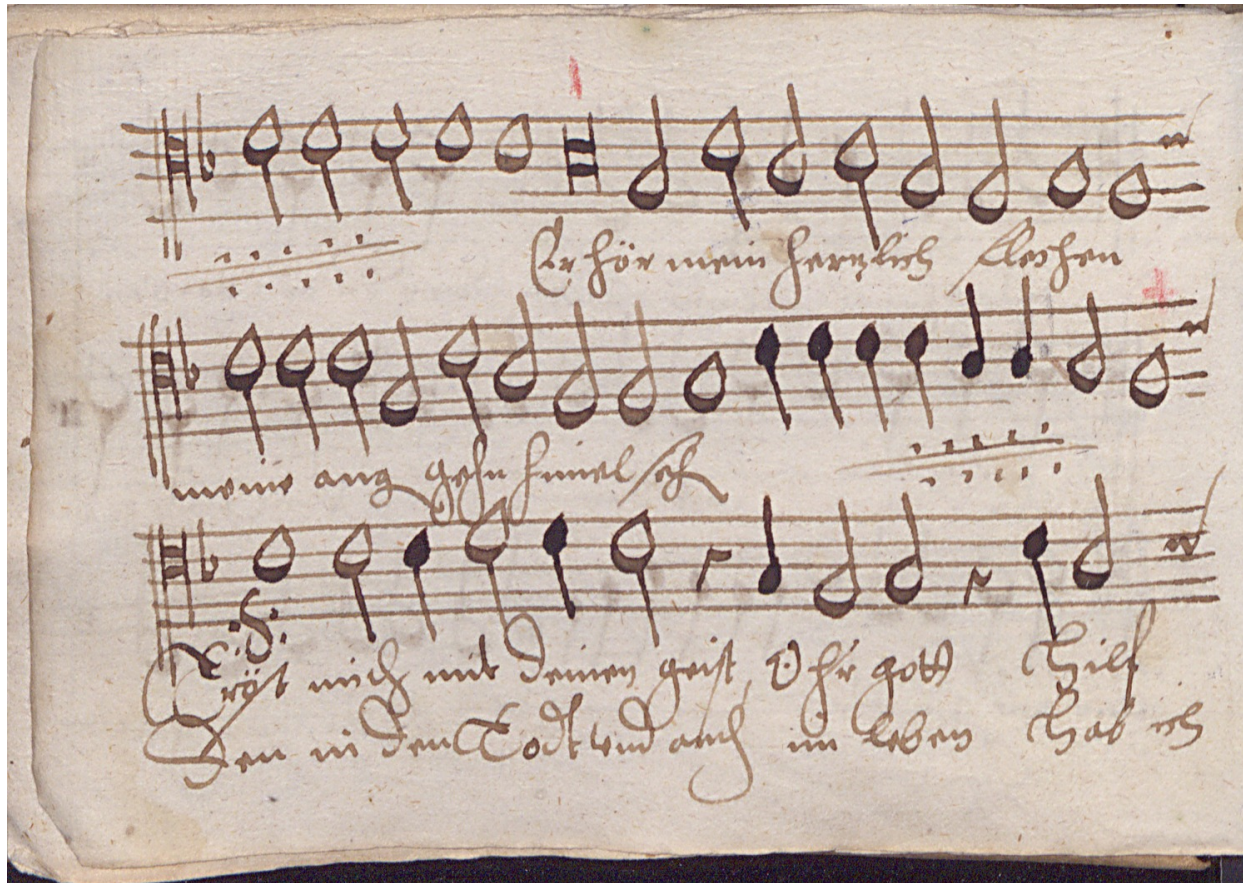 Erhör mein hertzlich flechen
meine aug gehn himel sch
Tröst mich mit deinen geist O hr gott Hilf
Den in den Todt vnd auch im leben Hab ich